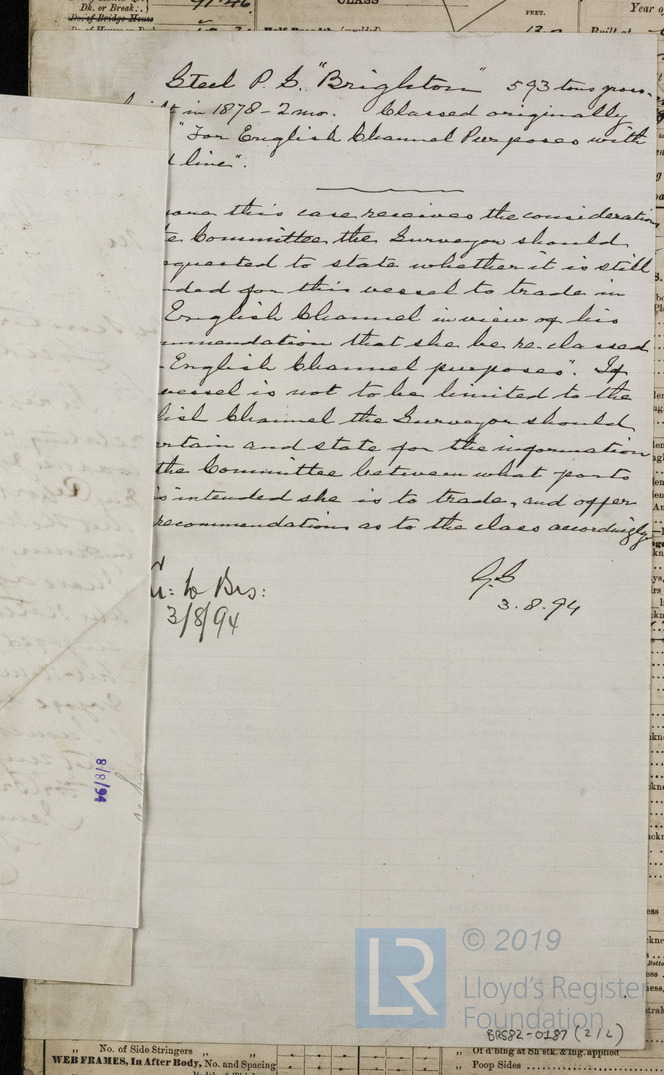 Dk. or Break
CLASS
FEET.
Year o
Do. of Bridge House
Built at
Steel P. S. "Brighton" 593 tons gross.
in 1878 - 2 mo. Classed originally
"For English Channel Purposes with
line".
this case receives the consideration
Committee, the Surveyor should
quested to state whether it is still
nded for this vessel to trade in
English Channel in view of his
mmendation that she be re-classed
English Channel purposes". If
vessel is not to be limited to the
lish Channel the Surveyor should
rtain and state for the information
the Committee between what ports
is intended she is to trade, and offer
recommendations as to the class accordingly
to Brs:
3/8/94
G.S
3.8.94
8/8/94
© 2019
LR
Lloyd's Register
Foundation
BRS82-0187 (2/2)
No. of Side Stringers
WEB FRAMES, In After Body, No. and Spacing
Of d'bling at Sh'stk. & Ing. applied
Poop Sides